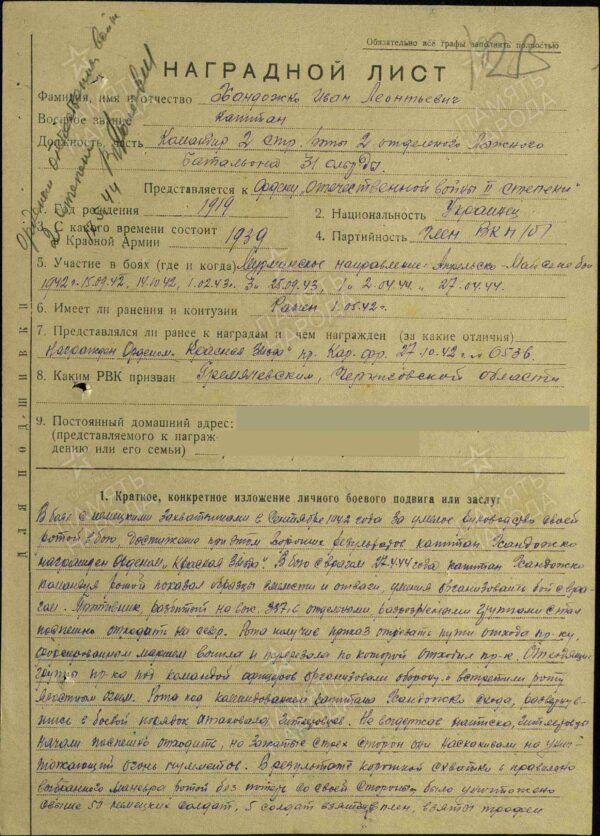 Обязательно все графы заполнить полностью
НАГРАДНОЙ ЛИСТ
Фамилия, имя и отчество Хандожко Иван Леонтьевич
Военное звание Капитан
Должность, часть Командир 2 стр. роты 2 отдельного Лыжного
батальона 31
Представляется к Ордену „Отечественной войны II степени"
1. Год рождения 1919
2. Национальность Украинец
3. С какого времени состоит в Красной Армии 1939
4. Партийность Член ВКП/б/
5. Участие в боях (где и когда) Мурманское направление - Апрельско-Майские бои
1942 г. 15.09.42, 14.10.42, 1.02.43г. 25.09.43, 2.04.44 27.04.44.
6. Имеет ли ранения и контузии Ранен 1.05.42г.
7. Представлялся ли ранее к наградам и чем награжден (за какие отличия)
Награжден Орденом „Красная Звезда" пр. Кар. фр. 27.10.42г. № 0536.
8. Каким РВК призван Гремячевским, Черниговской области
9. Постоянный домашний адрес:
(представляемого к награж-
дению или его семьи)
1. Краткое, конкретное изложение личного боевого подвига или заслуг
В боях с немецкими захватчиками в Сентябре 1942 года за умелое руководство своей
ротой в бою, достижение при этом хороших результатов капитан Хандожко
награжден Орденом „Красная Звезда". В бою с врагом 27.4.44 года капитан Хандожко
командуя ротой показал образцы смелости и отваги, умения организовать бой с вра-
гом. Противник, разбитый на выс. 337.6 отдельными разрозненными группами стал
поспешно отходить на север. Рота получив приказ отрезать пути отхода пр-ку,
форсированным маршем вышла и перерезала по которой отходил пр-к. Отходящие
группы пр-ка под командой офицеров организовали оборону и встретили роту
огнем. Рота под командованием капитана Хандожко с хода, развернув-
шись в боевой порядок атаковала гитлеровцев. Не выдержав натиска, гитлеровцы
начали поспешно отходить, но зажатые с трех сторон они наскакивали на унич-
тожающий огонь пулеметов. В результате короткой схватки и правильно
выбранного маневра ротой без потерь со своей стороны было уничтожено
свыше 50 немецких солдат, 5 солдат взяты в плен, взяты трофеи
ДЛЯ ПОДШИВКИ
ПАМЯТЬ НАРОДА